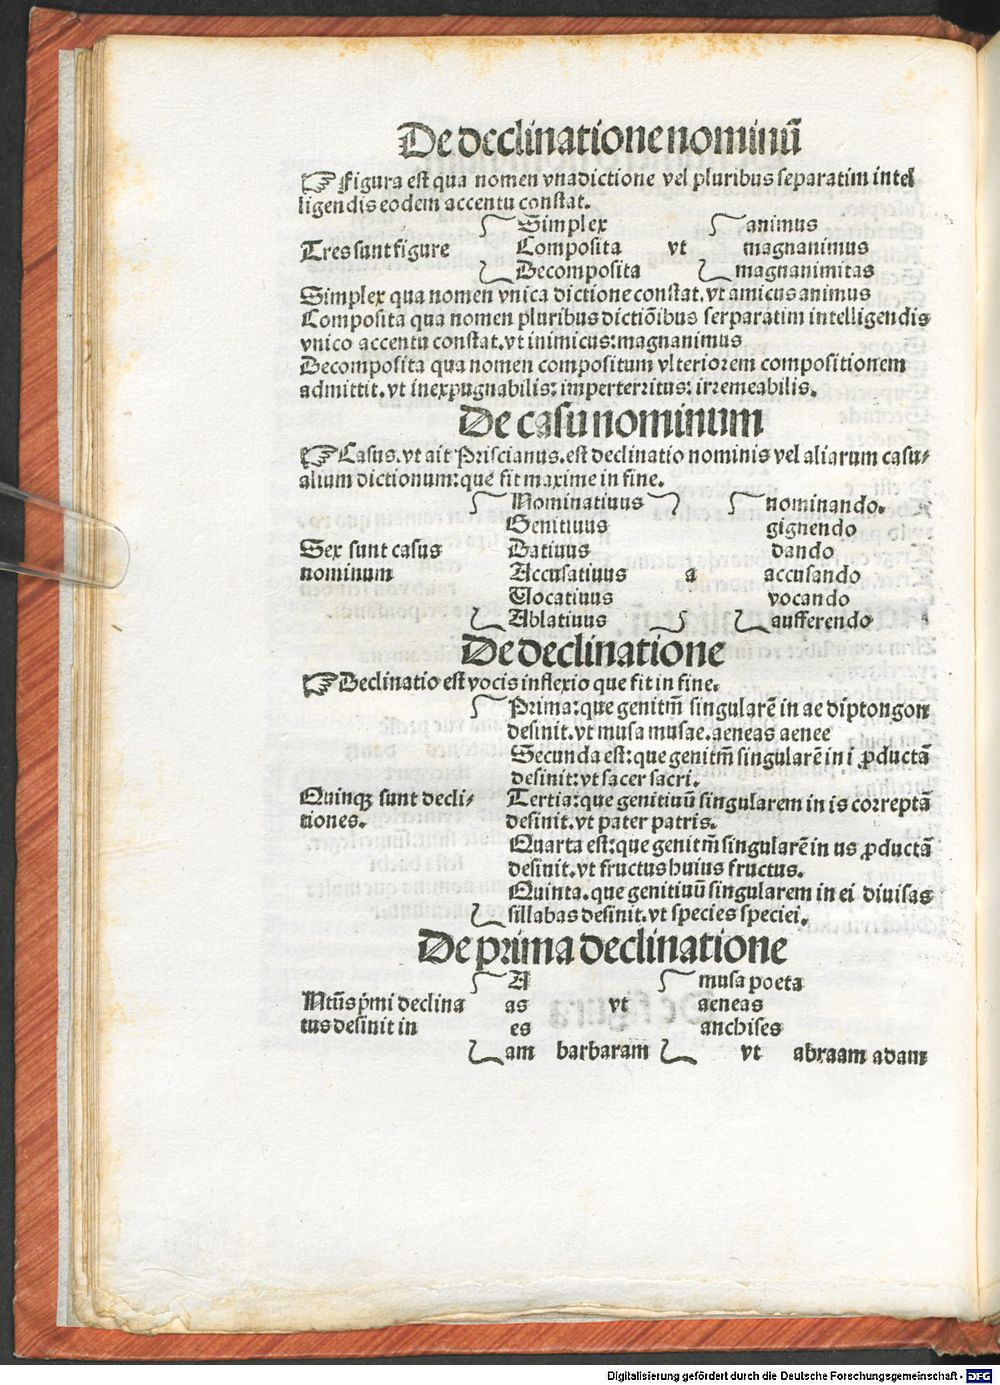 De declinatione nominū
☞ Figura est qua nomen vna dictione vel pluribus separatim intel
ligendis eodem accentu constat.
Simplex animus
Tres sunt figure Composita vt magnanimus
Decomposita magnanimitas
Simplex qua nomen vnica dictione constat. vt amicus animus
Composita qua nomen pluribus dictiōibus serparatim intelligendis
vnico accentu constat. vt inimicus: magnanimus
Decomposita qua nomen compositum vlteriorem compositionem
admittit. vt inexpugnabilis: imperterritus: irremeabilis.
De casu nominum
☞ Casus. vt ait Priscianus. est declinatio nominis vel aliarum casu-
alium dictionum: que fit maxime in fine.
Nominatiuus nominando.
Genitiuus gignendo
Sex sunt casus Datiuus dando
nominum Accusatiuus a accusando
Vocatiuus vocando
Ablatiuus aufferendo
De declinatione
☞ Declinatio est vocis inflexio que fit in fine.
Prima: que genitm̄ singularē in ae diptongon
desinit. vt musa musae. aeneas aenee
Secunda est: que genitm̄ singularē in i ꝓductā
desinit: vt sacer sacri.
Quinqꝫ sunt decli- Tertia: que genitiuū singularem in is correptā
tiones. desinit. vt pater patris.
Quarta est: que genitm̄ singularē in us ꝓductā
desinit. vt fructus huius fructus.
Quinta. que genitiuū singularem in ei diuisas
sillabas desinit. vt species speciei.
De prima declinatione
A musa poeta
Ntūs pͥmi declina as vt aeneas
tus desinit in es anchises
am barbaram vt abraam adam
Digitalisierung gefördert durch die Deutsche Forschungsgemeinschaft - DFG